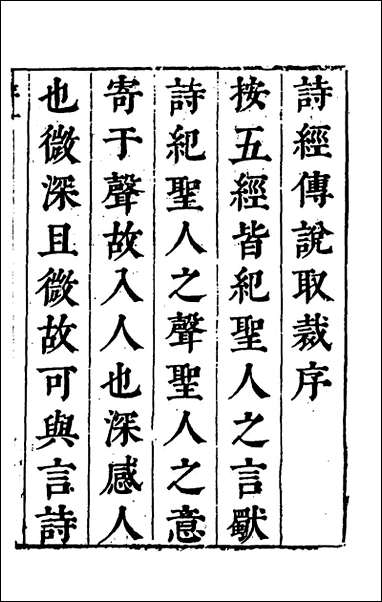 詩經傳說取裁序
按五經皆紀聖人之言獸
詩紀聖人之聲聖人之意
寄于聲故入人也深感人
也微深且微故可與言詩